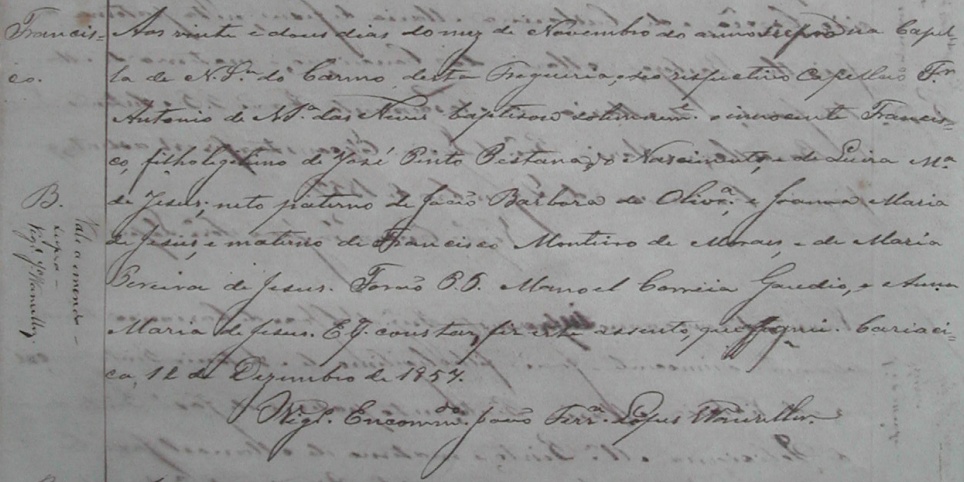 Francis-
co.
B.
Vale a emenda -
supra -
Aos vinte e dous dias do mez de Novembro do anno supra na Capel-
la de N. Sra. do Carmo, desta Freguezia, seo respectivo Capellão Fr.
Antonio de N. Sa. das Neves baptisou solemnem.e o innocente Francis-
co, filho legitimo de José Pinto Pestana do Nascimento, e de Luiza Ma.
de Jesus; neto paterno de João Barboza de Olivra., e Joanna Maria
de Jesus, e materno de Francisco Monteiro de Moraes, e de Maria
Pereira de Jesus. Forão P.P. Manoel Correia Gaudio, e Anna
Maria de Jesus. E pa. constar, fiz este assento, que assignei. Cariaci-
ca, 12 de Dezembro de 1857.
Vigr. Encommdo. João Ferra. Lopes